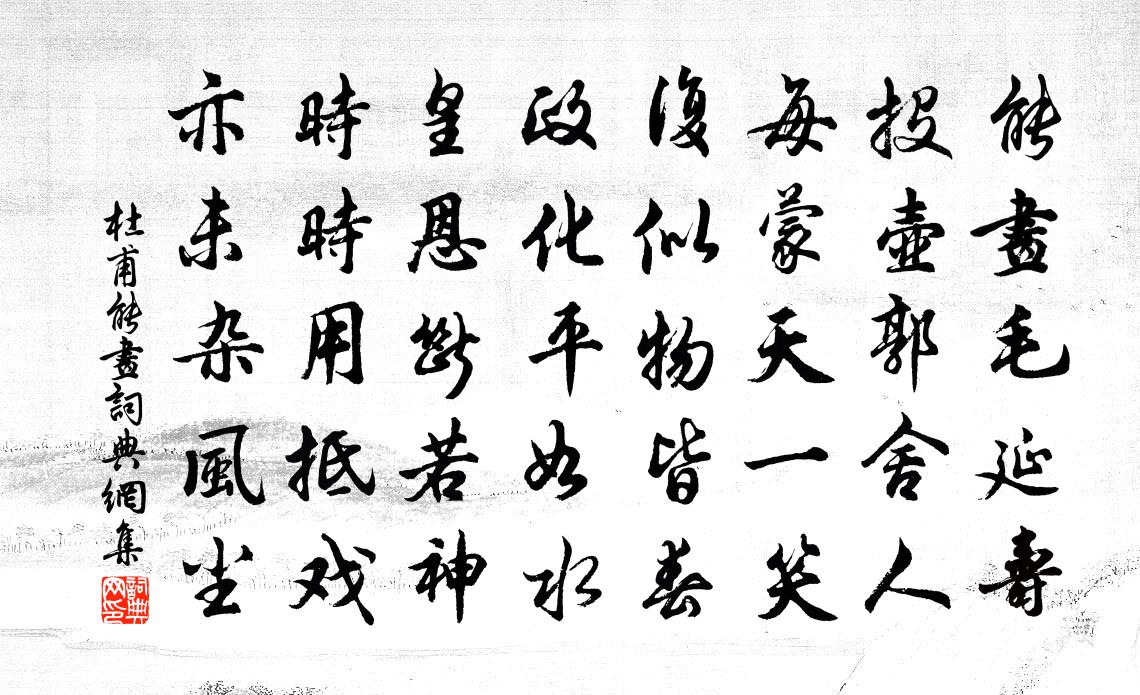 能畫毛延壽
投壺郭舍人
每蒙天一笑
復似物皆春
政化平如水
皇恩斷若神
時時用抵戏
亦未杂風尘
杜甫能畫詞典網集
詞典網印